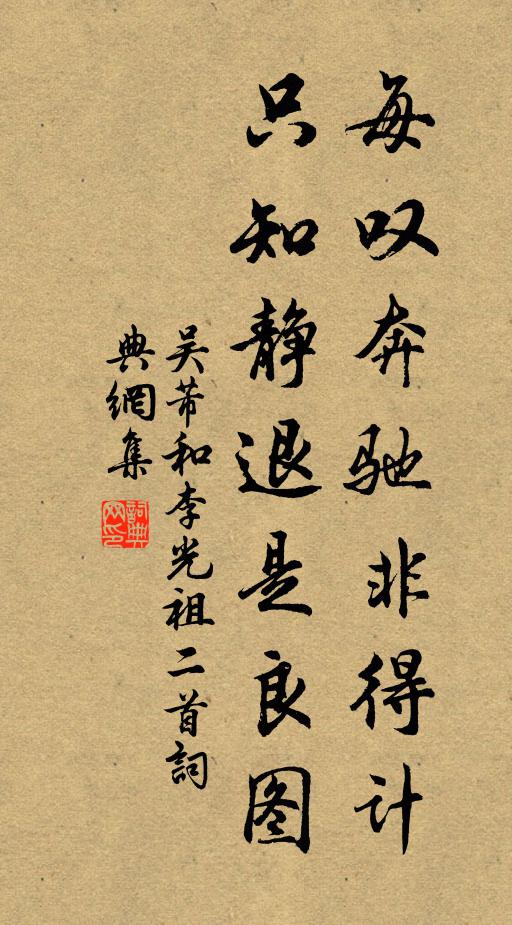 每叹奔驰非得计
只知静退是良图
吴芾和李光祖二首詞
典網集
詞典网印